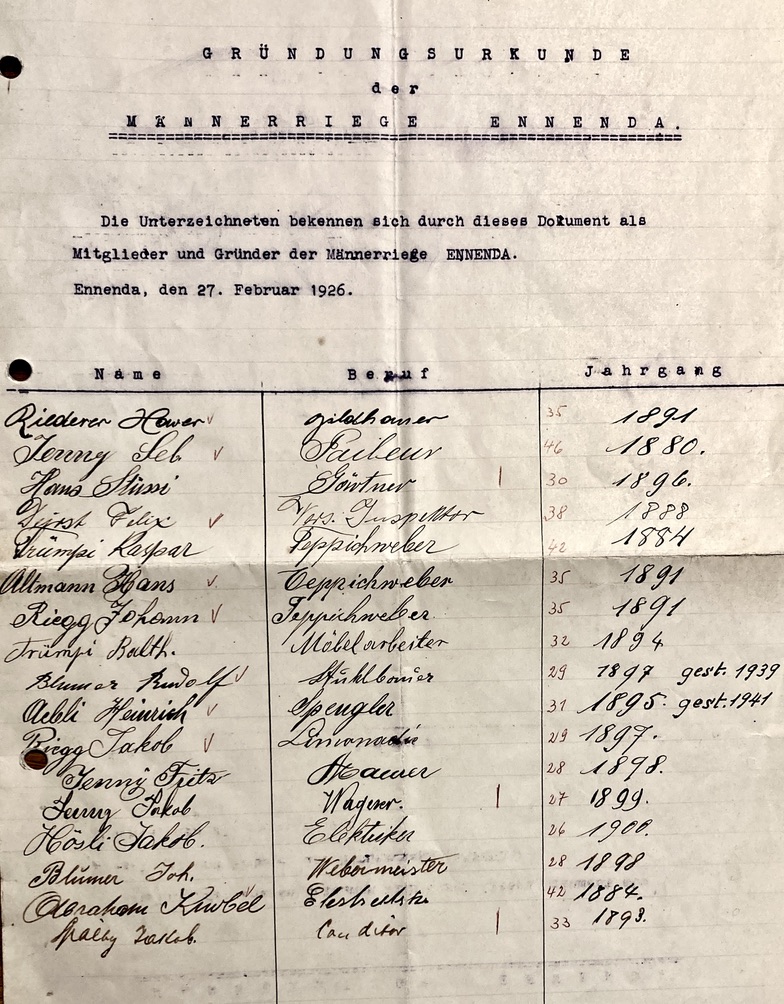 GRÜNDUNGSURKUNDE
der
MÄNNERRIEGE ENNENDA.
Die Unterzeichneten bekennen sich durch dieses Dokument als
Mitglieder und Gründer der Männerriege ENNENDA.
Ennenda, den 27. Februar 1926.
Name Beruf Jahrgang
Riederer 35 1891
Jenny Seb 46 1880.
Hans Stüssi Gärtner 30 1896.
Felix Vers. Inspektor 38 1888
Trümpi Kaspar Teppichweber 42 1884
Altmann Hans Teppichweber 35 1891
Riegg Johann Teppichweber. 35 1891
Trümpi Balth. Möbelarbeiter 32 1894
Blumer Rudolf Stuhlbauer 29 1897 gest. 1939
Aebli Heinrich Spengler 31 1895. gest. 1941
Riegg Jakob 29 1897.
Jenny Fritz Maurer 28 1898.
Jenny Jakob Wagner. 27 1899.
Hösli Jakob. Elektriker 26 1900.
Blumer Joh. Webermeister 28 1898
Abraham 42 1884.
Jakob. Conditor 33 1893.